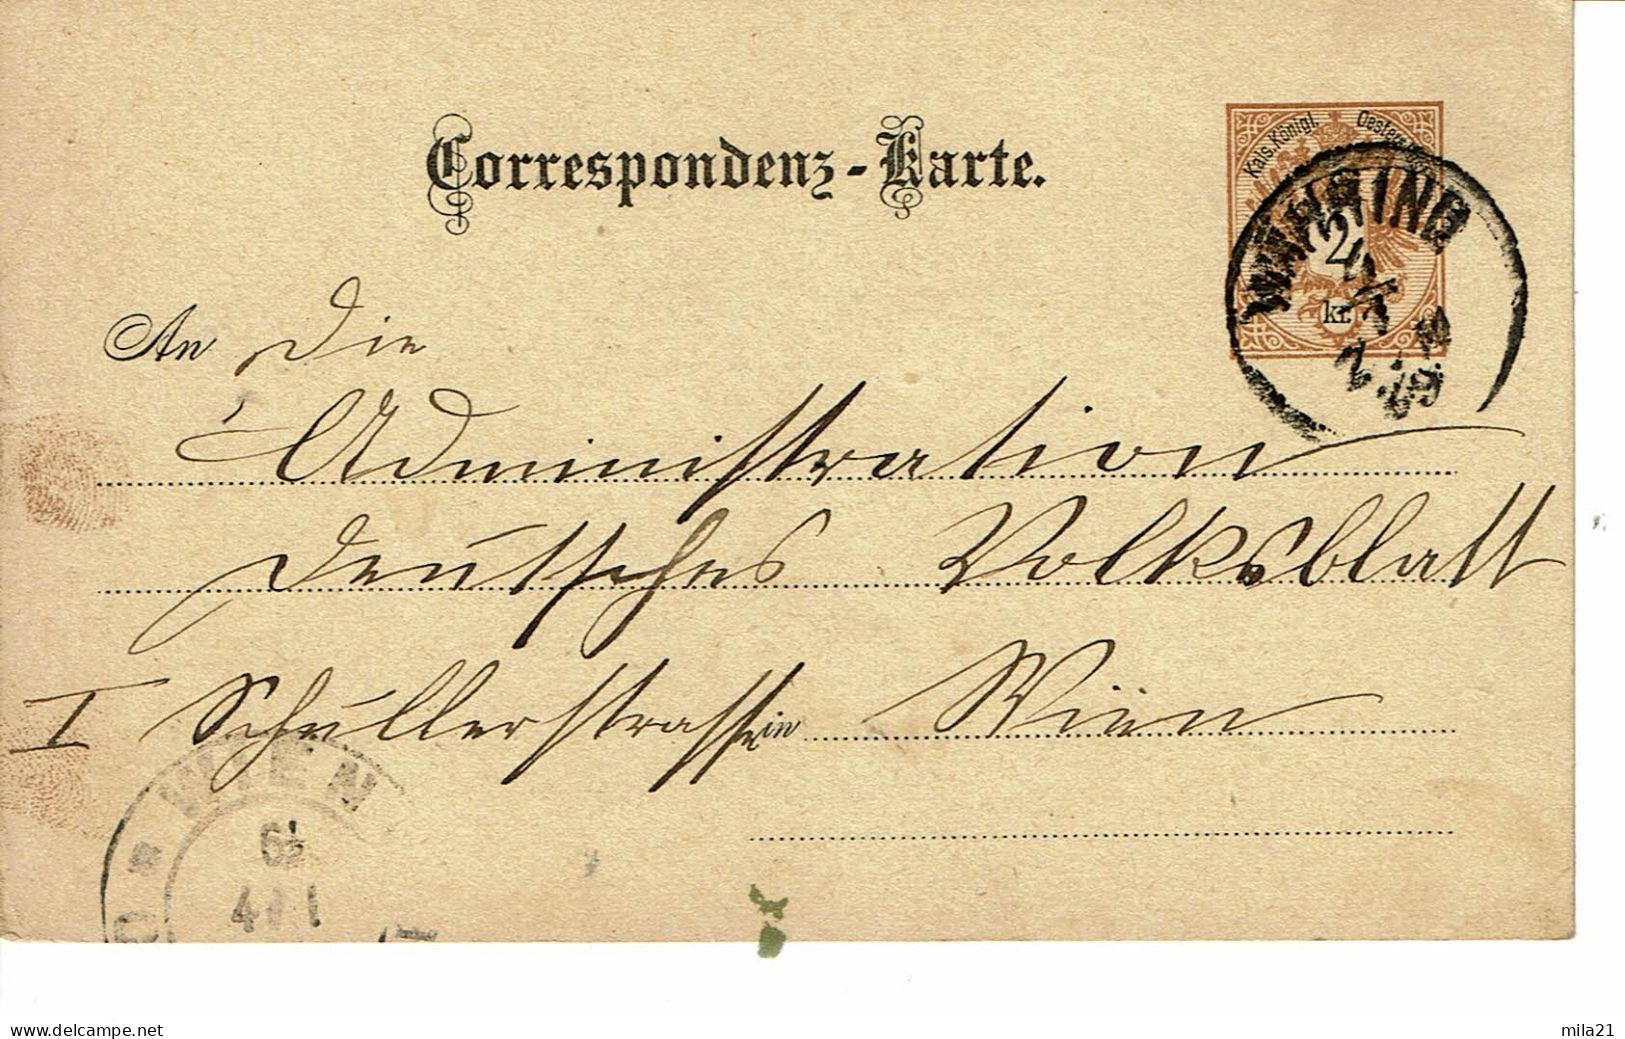 Correspondenz-Karte.
Kais. Königl. Oesterr.
2
kr.
WÄHRING
An die
Administration
Deutsches Volksblatt
I Schullerstrasse in Wien
WIEN
www.delcampe.net
mila21